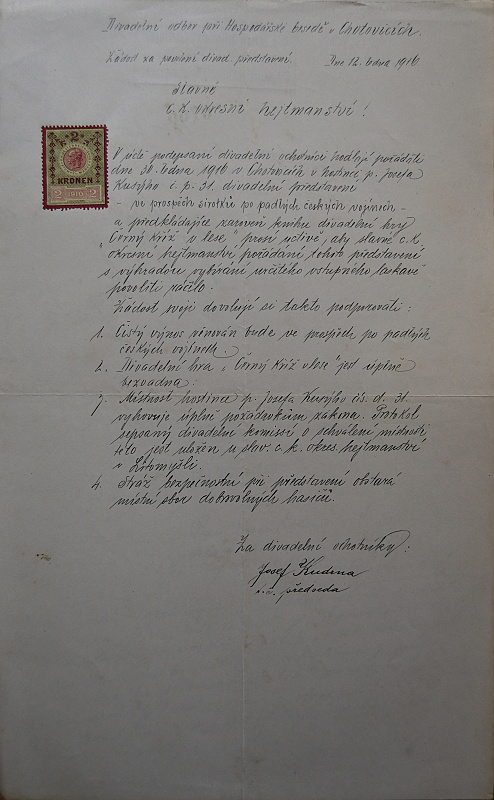 Divadelní odbor při Hospodářské besedě v Chotovicích.
Žádost za povolení divad. představení. Dne 12. ledna 1916.
Slavné
c. k. okresní hejtmanství!
2
KRONEN
2 1910 2
V úctě podepsaní divadelní ochotníci hodlají pořádati
dne 30. ledna 1916 v Chotovicích v hostinci p. Josefa
č. p. 31. divadelní představení
– ve prospěch sirotků po padlých českých vojínech –
a předkládajíce zároveň knihu divadelní hry
„Černý kříž v lese", prosí uctivě, aby slavné c. k.
okresní hejtmanství pořádání tohoto představení
s výhradou vybírání určitého vstupného laskavě
povoliti ráčilo.
Žádost svoji dovolují si takto podporovati:
1. Čistý výnos věnován bude ve prospěch po padlých
českých vojínech.
2. Divadelní hra „Černý kříž v lese" jest úplně
bezvadna.
3. Místnost hostince p. Josefa čís. d. 31.
vyhovuje úplně požadavkům zákona. Protokol
sepsaný divadelní komissí o schválení místnosti
této jest uložen u slav. c. k. okres. hejtmanství
v Litomyšli.
4. Stráž bezpečnostní při představení obstará
místní sbor dobrovolných hasičů.
Za divadelní ochotníky:
Josef Kudrna
předseda